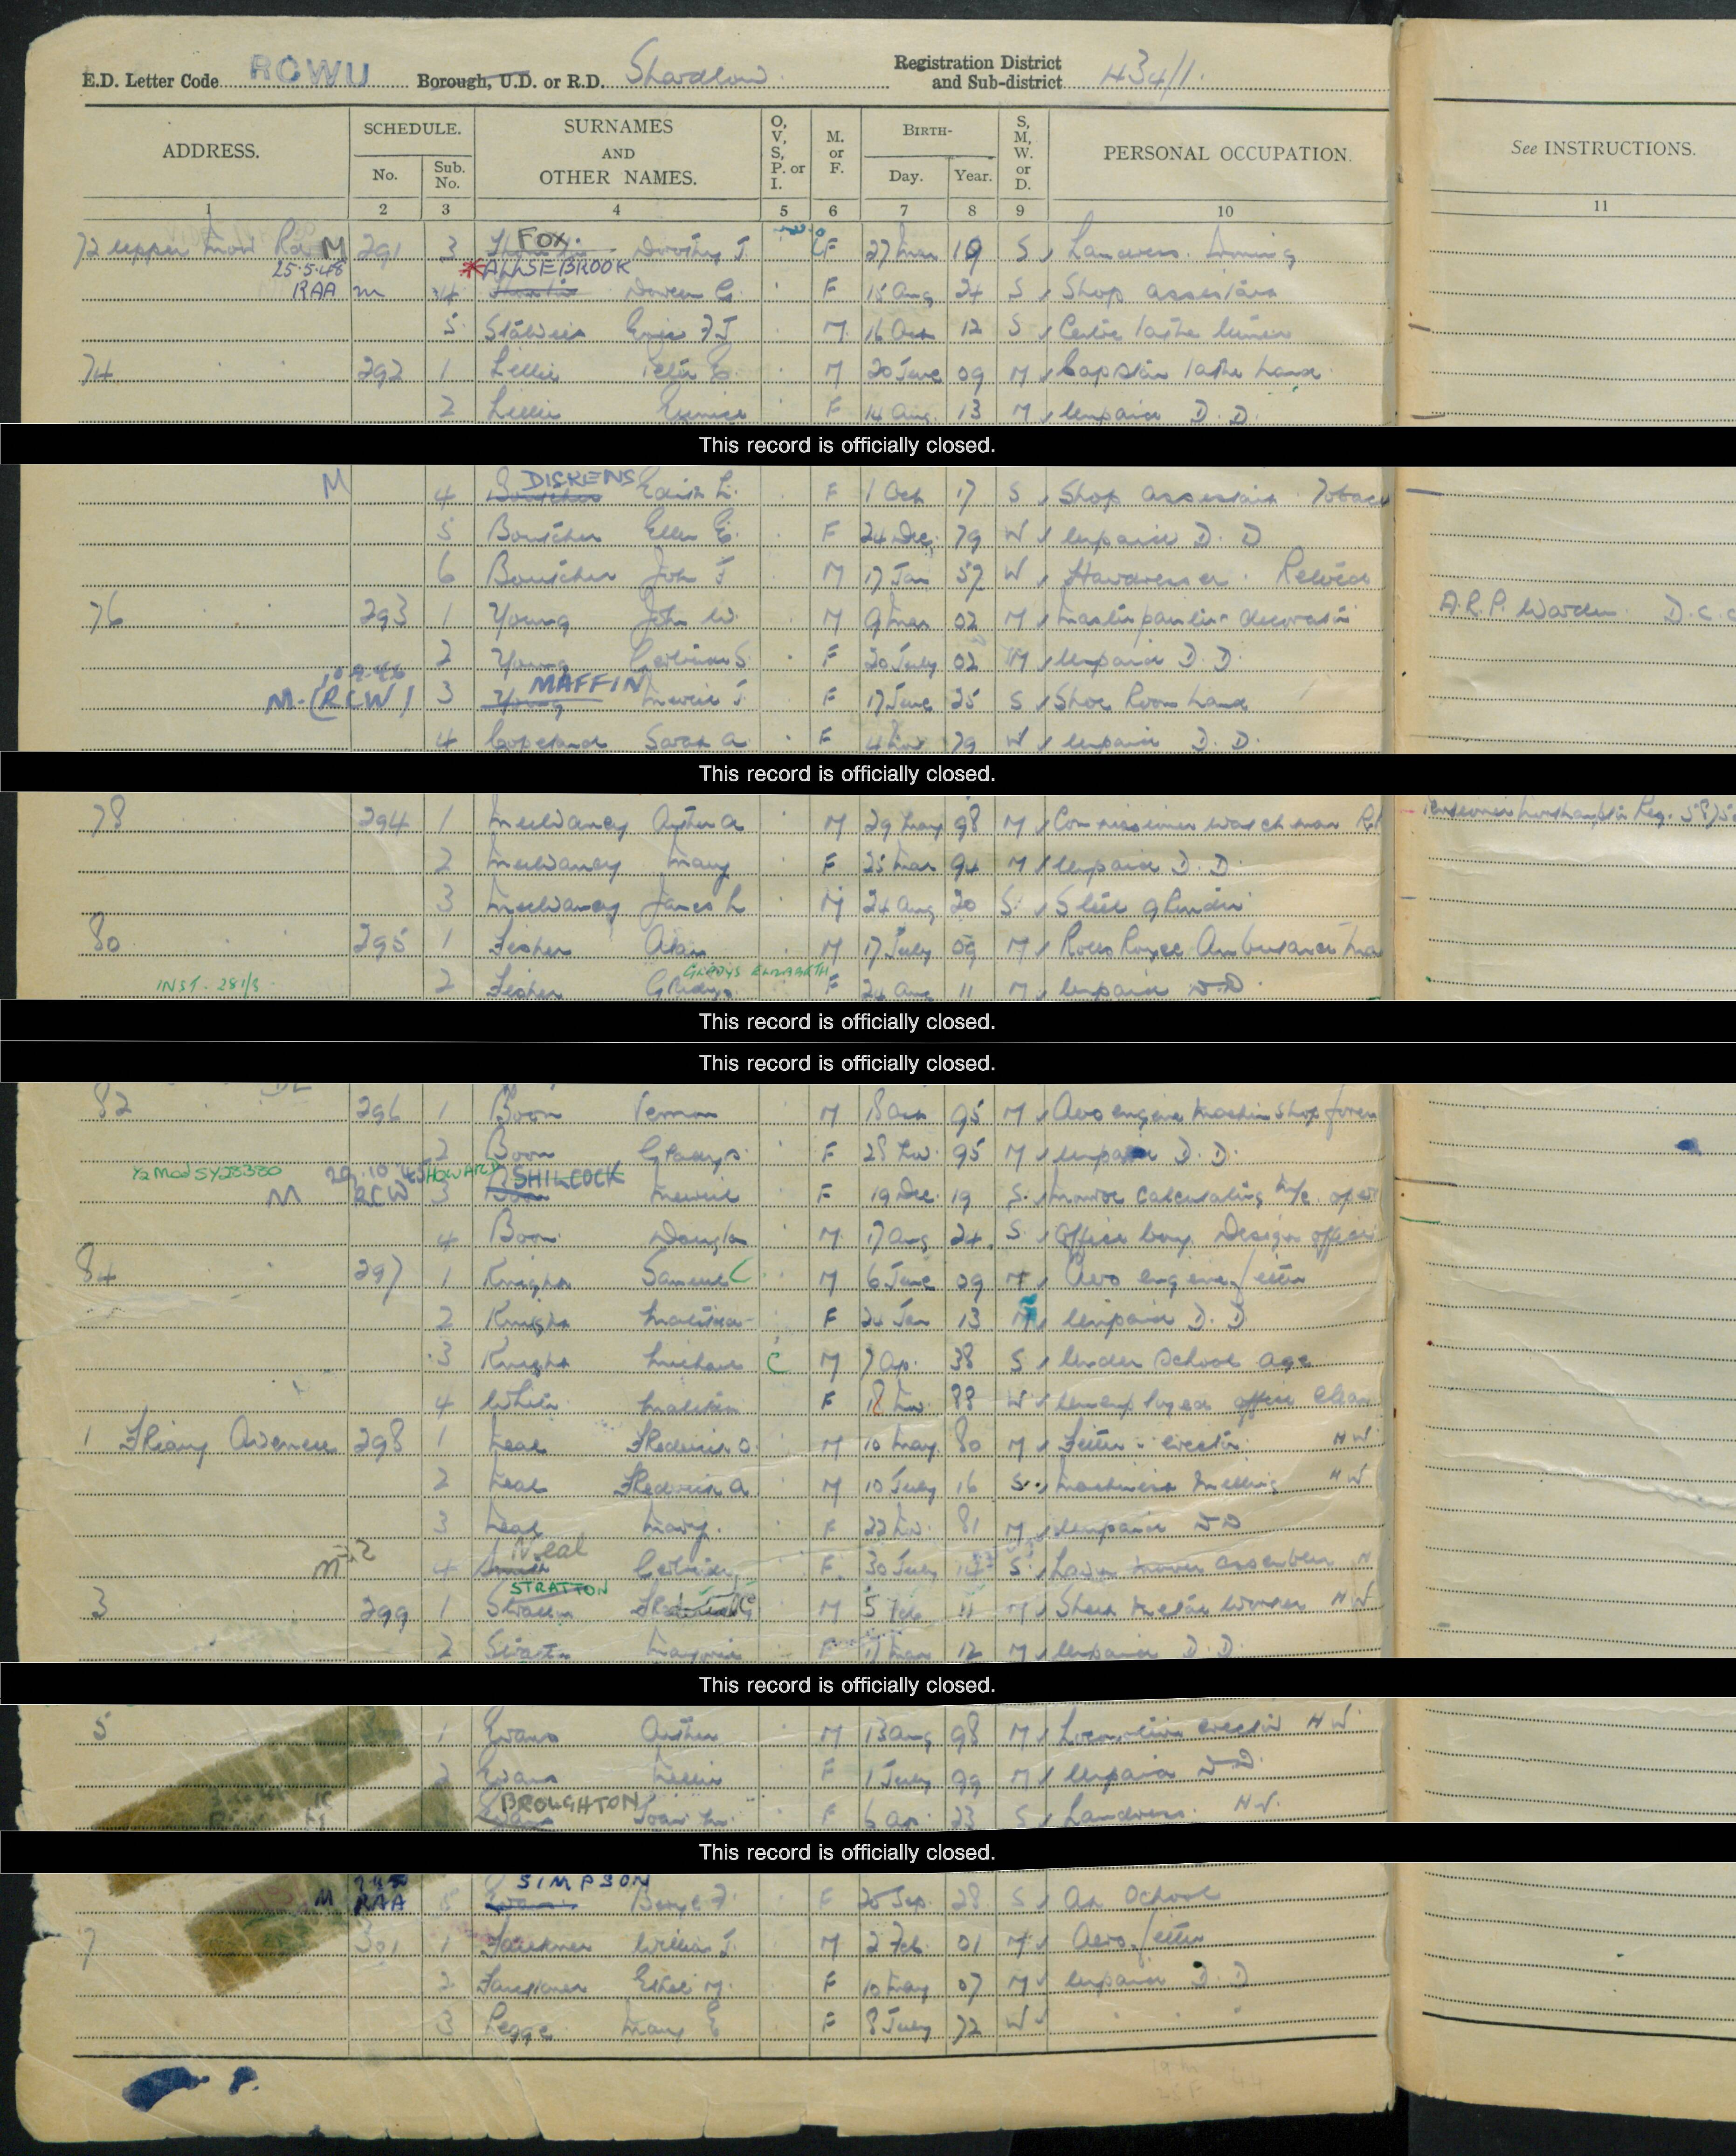 E.D. Letter Code RCWU Borough, U.D. or R.D. Shardlow Registration District and Sub-district 434/1.
ADDRESS. SCHEDULE. No. Sub. No. SURNAMES AND OTHER NAMES. O, V, S, P. or I. M. or F. BIRTH- Day. Year. S, M, W. or D. PERSONAL OCCUPATION. See INSTRUCTIONS.
1 2 3 4 5 6 7 8 9 10 11
FOX.
72 Upper Moor Rd M 291 3 Dorothy F 27 Mar 19 S
25.5.48 ALLSEBROOK
RAA m 4 Doreen F 15 Aug 24 S Shop assistant
5 M 16 Oct 12 S Centre lathe turner
74 292 1 Lillie M 20 June 09 M Capstan lathe hand
2 Lillie Eunice F 14 Aug. 13 M Unpaid D. D.
This record is officially closed.
DICKENS
M 4 Edith L. F 1 Oct 17 S Shop assistant Tobacc
5 Bourcher Ellen E. F 24 Dec. 79 W Unpaid D. D
6 Bourcher John M 17 Jan 57 W Hairdresser Retired
76 293 1 Young John W. M 9 Mar 02 M Master painter decorator A.R.P. Warden D.C.C
2 Young Gertrude S. F 20 July 02 M Unpaid D. D.
MAFFIN
M. (RCW) 3 Young F 17 June 25 S Shoe Room hand
4 Copeland Sarah A F 4 Nov 79 W Unpaid D. D.
This record is officially closed.
78 294 1 Mulvaney Arthur A M 29 May 98 M
2 Mulvaney Mary F 25 Mar 94 M Unpaid D. D.
3 Mulvaney James L M 24 Aug 20 S Steel grinder
80 295 1 Fisher Alan M 17 July 09 M Rolls Royce Ambulance
GLADYS ELIZABETH
INST. 281/3 2 Fisher Gladys F 24 Aug 11 M Unpaid D.D.
This record is officially closed.
This record is officially closed.
82 296 1 Boon Vernon M 18 95 M Aero engine machine shop forem
2 Boon Gladys F 28 Nov. 95 M Unpaid D. D.
29.10.45 HOWARD SHILCOCK
M RCW 3 Boon F 19 Dec. 19 S Monroe calculating m/c
4 Boon Douglas M 17 Aug 24 S Office boy Design office
84 297 1 Knight Samuel C M 6 June 09 M Aero engine fitter
2 Knight Matilda F 24 Jan 13 M Unpaid D. D
3 Knight Michael C M 7 Ap. 38 S Under school age
4 White Matilda F 18 Nov. 88 W Unemployed office clean
1 Friary Avenue 298 1 Neal Frederick O. M 10 May 80 M Fitter erector H W
2 Neal Frederick A M 10 July 16 S Machinist milling H W
3 Neal Mary. F 22 Nov. 81 M Unpaid D D
Neal
4 Smith F. 30 July S Lawn mower assembler H
STRATTON
3 299 1 Stratton Frederick G M 5 Feb 11 M Sheet metal worker H W
2 Stratton Marjorie F 17 Mar 12 M Unpaid D. D.
This record is officially closed.
5 1 Evans Arthur M 13 Aug 98 M Locomotive erector H W
2 Evans Nellie F 1 July 99 M Unpaid D D
BROUGHTON
Evans Joan M. F 6 Ap. 23 S Laundress H W.
This record is officially closed.
SIMPSON
M RAA 5 Evans Beryl F. F 20 Sep. 28 S At School
7 301 1 Faulkner William J. M 2 Feb. 01 M Aero fitter
2 Faulkner Ethel M. F 10 May 07 M Unpaid D. D
3 Legge Mary E F 8 July 72 W